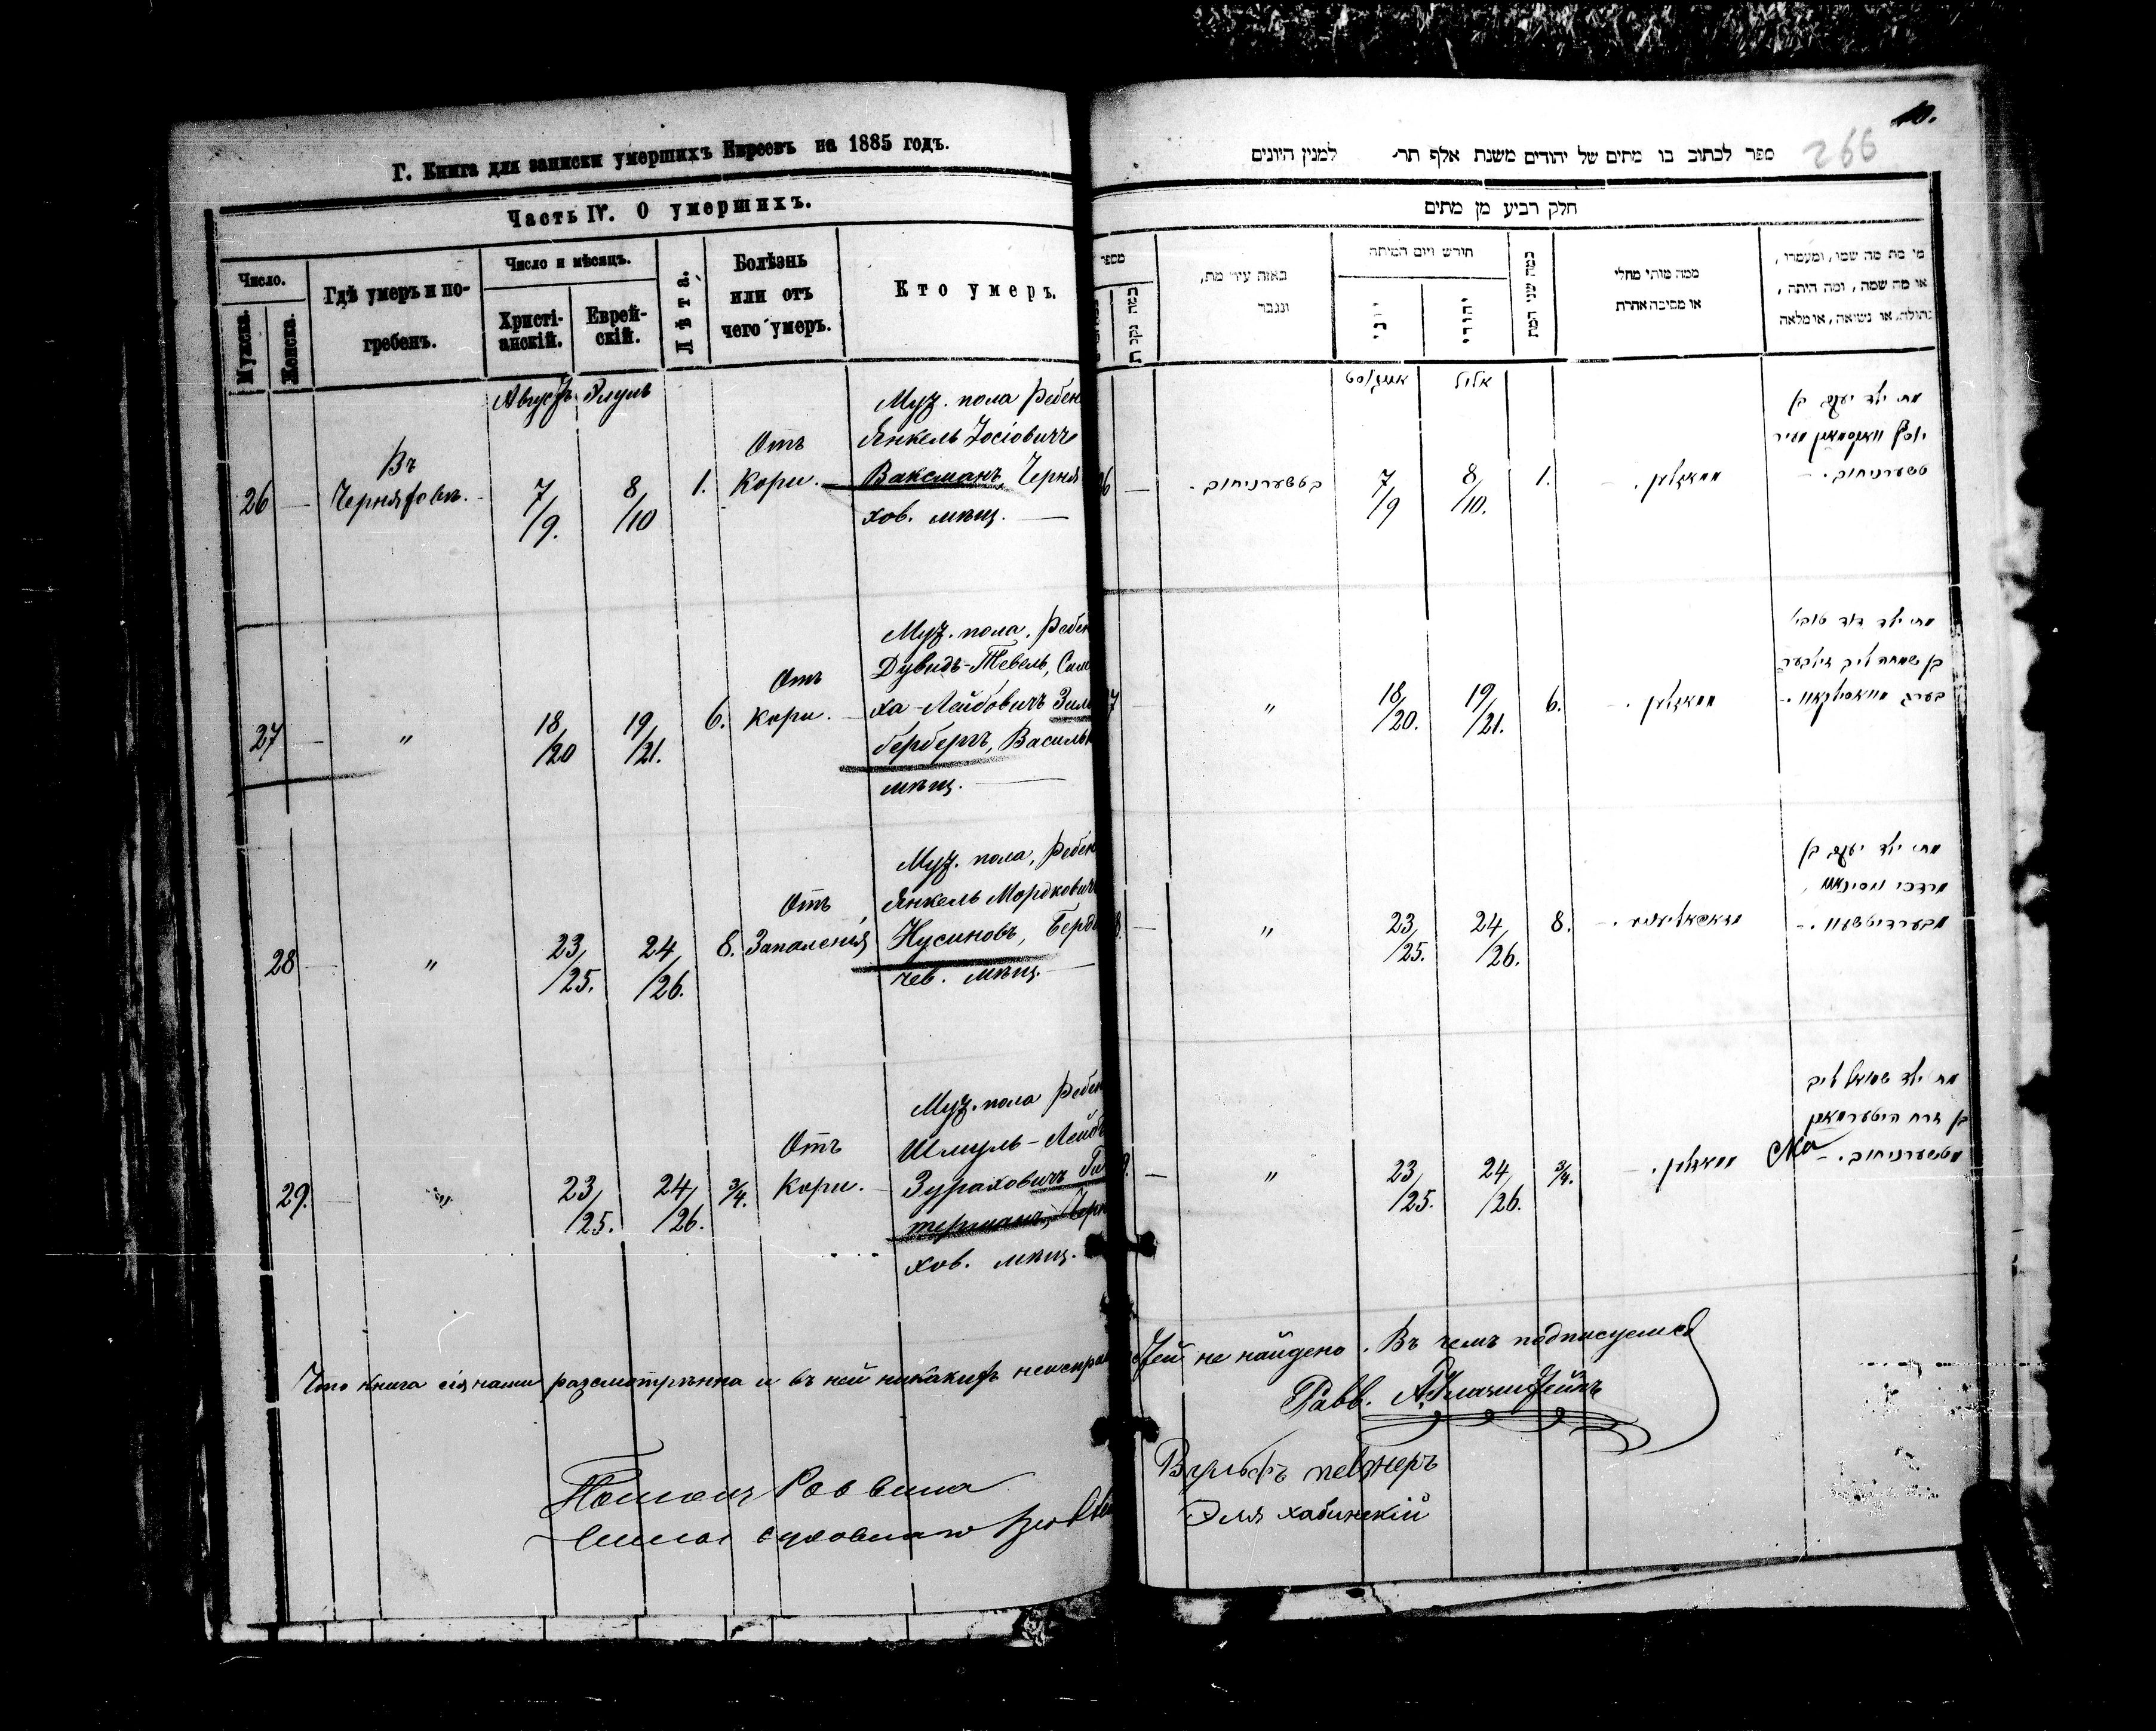 Г. Книга для записки умершихъ Евреевъ на 1885 годъ.
Часть IV. О умершихъ.
Число.
Мужеск.
Женска.
Гдѣ умеръ и по-
гребенъ.
Число и мѣсяцъ.
Христі-
анскій.
Еврей-
скій.
Лѣта.
Болѣзнь
или отъ
чего умеръ.
Кто умеръ.
Августъ Элулъ
26
Въ
Черняховѣ.
7/9.
8/10
1.
Отъ
Кори.
Муж. пола Ребен
Янкель Іосіовичъ
Ваксманъ, Черня
хов. мѣщ.
27
"
18/20
19/21.
6.
Отъ
Кори.
Муж. пола. Ребен
Дувидъ-Тевель, Сим
ха-Лейбовичъ Зиль
бербергъ, Васильк
мѣщ.
28
"
23/25.
24/26.
8.
Отъ
Запаленія
Муж. пола, Ребен
Янкель Мордковичъ
Нусиновъ, Берди
чев. мѣщ.
29.
"
23/25.
24/26.
3/4.
Отъ
Кори.
Муж. пола Ребен
Шмуль-Лейбъ
Зураховичъ Ги
терманъ, Черня
хов. мѣщ.
10.
266
ספר לכתוב בו מתים של יהודים משנת אלף תר למנין היונים
חלק רביע מן מתים
מספר
באזה עיר מת,
ונגבר
חודש ויום המיתה
יוני
יהודי
כמה שני המת
ממה מותי מחלי
או מסיבה אחרת
מי מת מה שמו, ומעמדו,
או מה שמה, ומה היתה,
בתולה, או נשואה, או מלאה
אויגוסט
אלול
26
בטשערניחוב.
7/9
8/10.
1.
מאזלען.
מת ילד יעקב בן
יוסף וואקסמאן מעיר
טשערניחוב.
27
"
18/20.
19/21.
6.
מאזלען.
מת ילד דוד טובי'
בן שמחה ליב זילבער
בערג מוואסילקאוו
8.
"
23/25.
24/26.
8.
מת ילד יעקב בן
מרדכי נוסינאוו
מבערדיטשעוו
9.
"
23/25.
24/26.
3/4.
מאזלען.
מת ילד שמואל ליב
בן זרח היטערמאן
מטשערניחוב.
Что книга сія нами разсмотрѣнна и въ ней никакихъ неисправностей не найдено. Въ чемъ подписуемся
Равв.
Вульфъ певзнеръ
Эля хабинскій